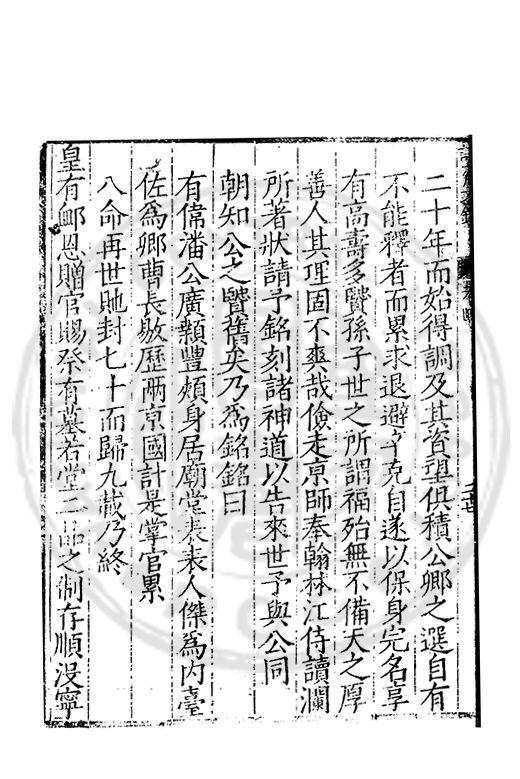 二十年而始得調及其資望俱積公卿之選自有
不能釋者而累求退避卒克自遂以保身完名享
有高壽多賢孫子世之所謂福殆無不備天之厚
善人其理固不爽哉儉走京師奉翰林江侍讀瀾
所著狀請予銘刻諸神道以告來世予與公同
朝知公之賢舊矣乃爲銘銘曰
有偉潘公廣顙豐頰身居廟堂表表人傑爲内臺
佐爲卿曹長敭歷兩京國計是掌官累
八命再世貤封七十而歸九載乃終
皇有卹恩贈官賜祭有墓若堂二品之制存順没寧